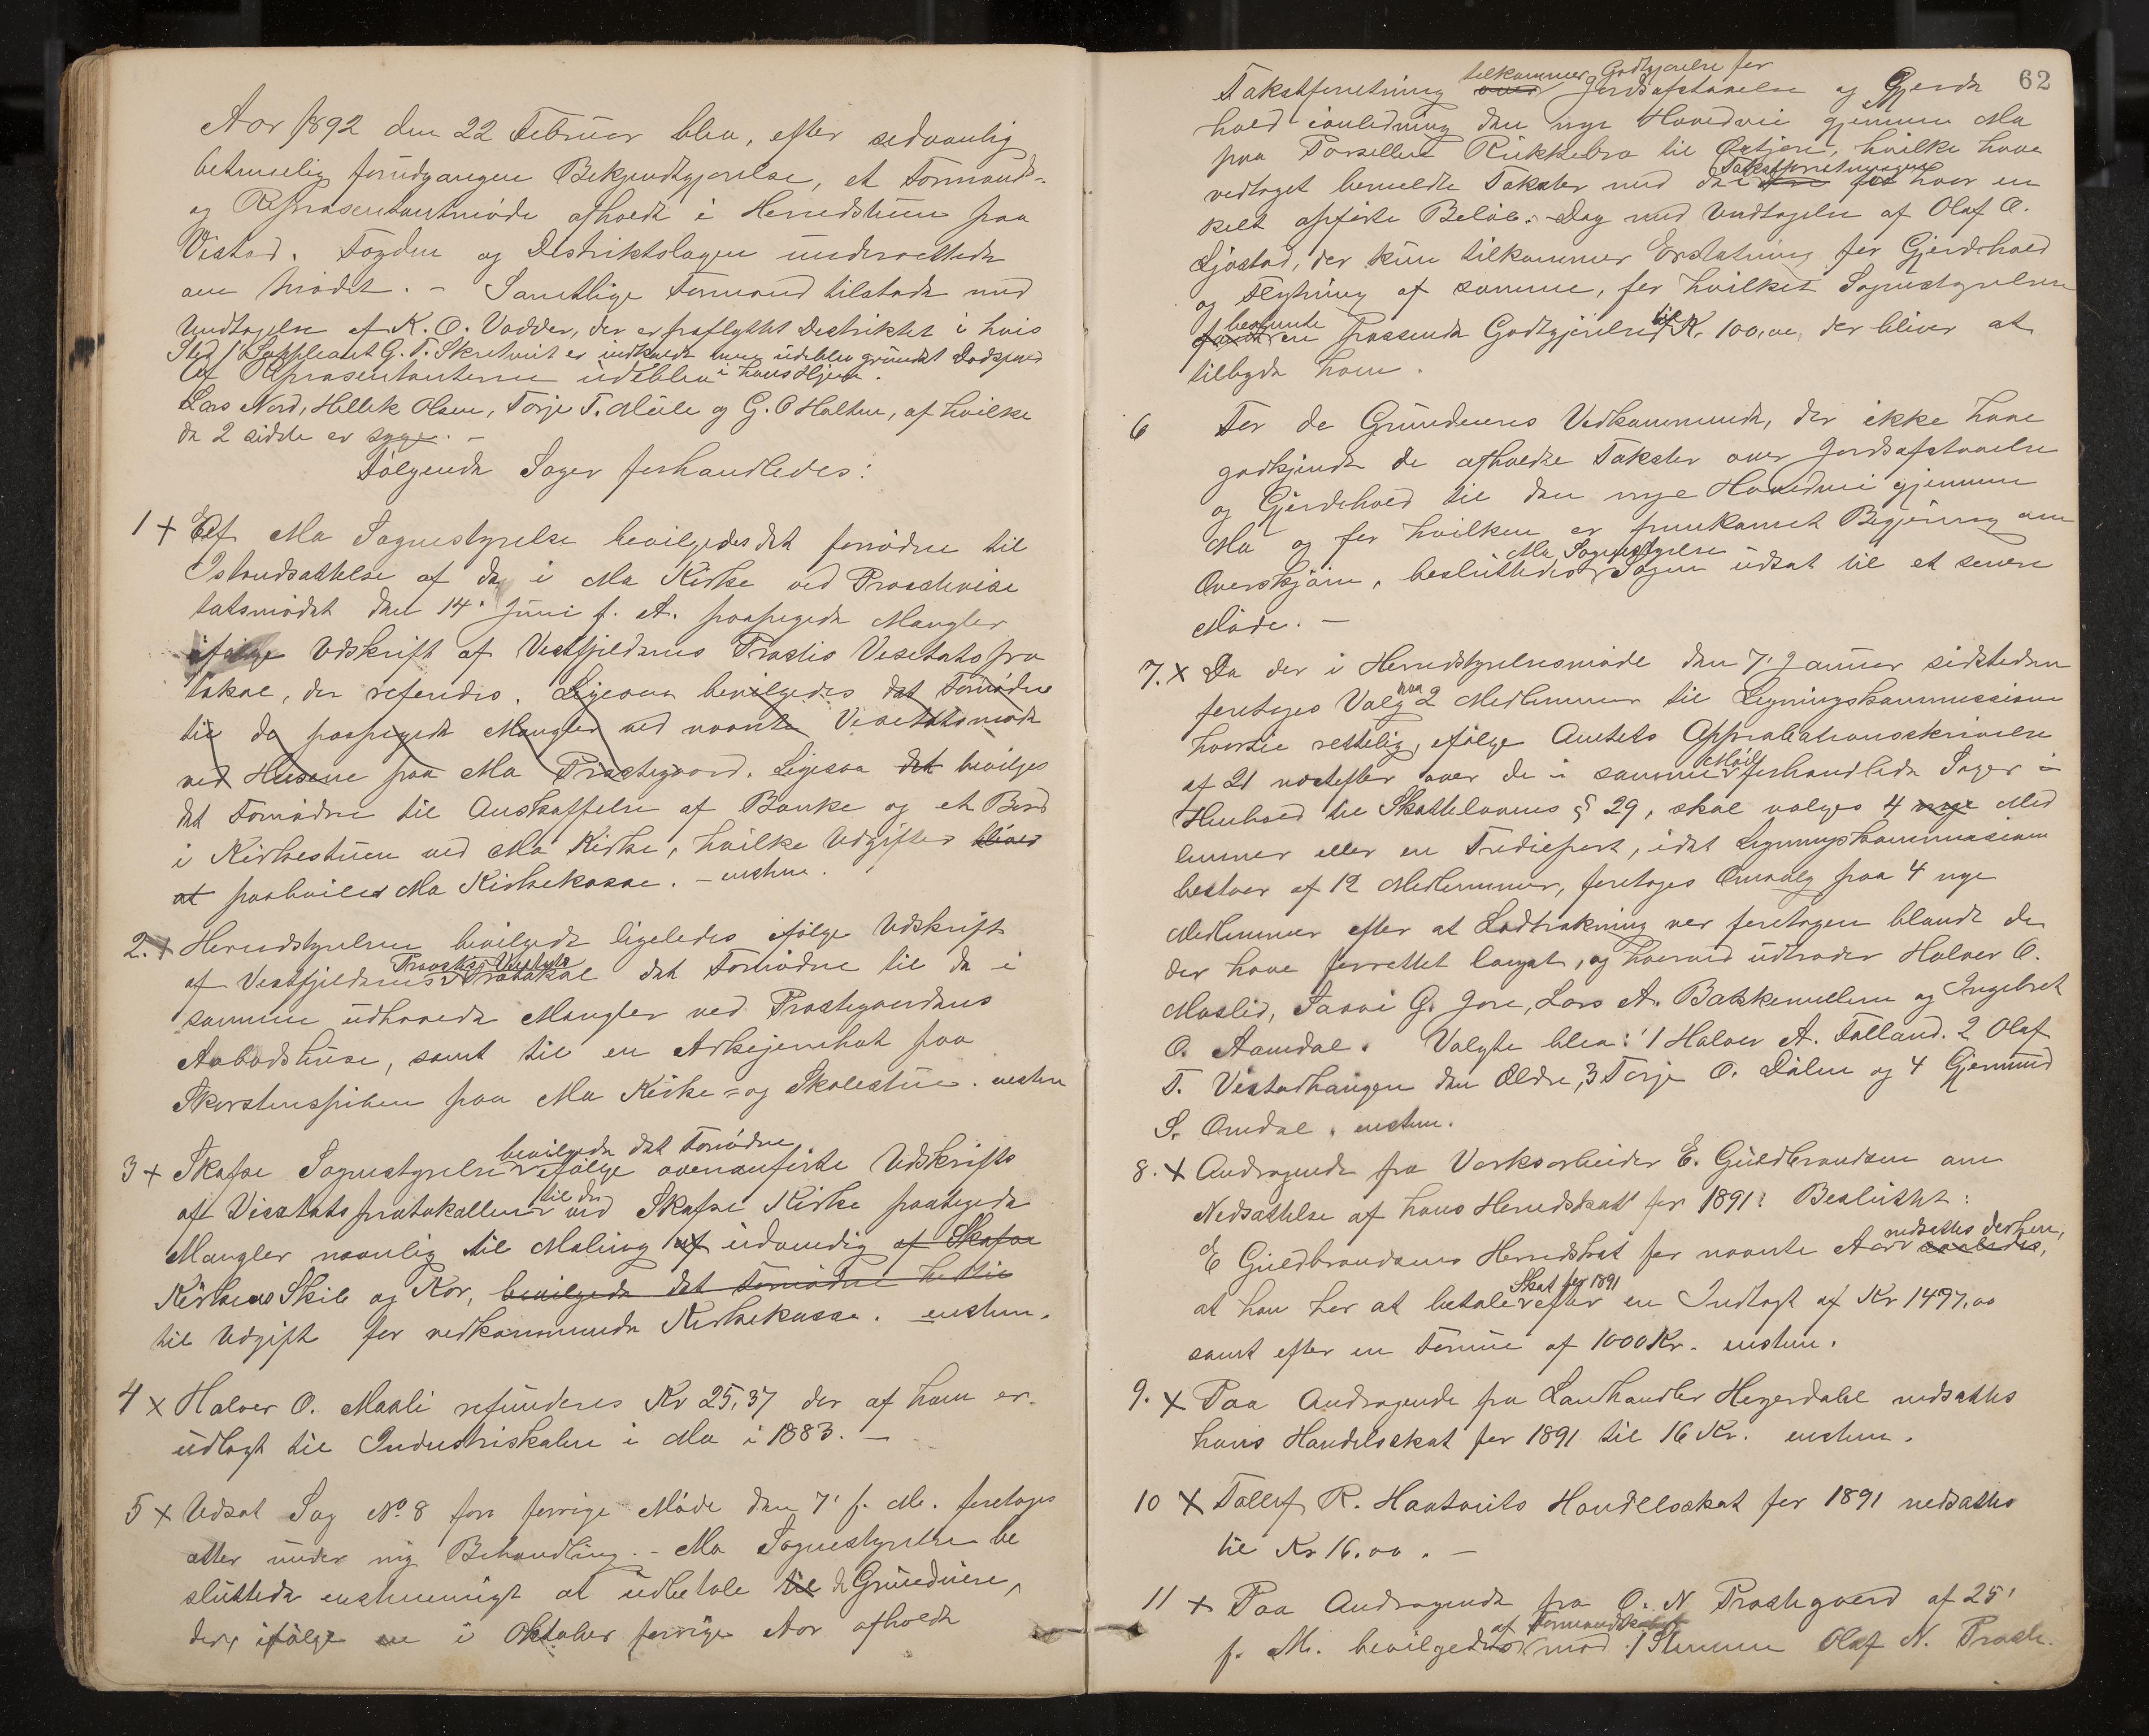 Aar 1892 den 22 Februar blev, efter sedvanlig
betimelig forudgangen Bekjendtgjørelse, et Formands-
og Repræsentantmøde afholdt i Herredstuen paa
Vistad. Fogden og Distriktslægen underrettede
om Mødet. – Samtlige Formænd tilstede med
Undtagelse af K. O. Vadder, der er fraflyttet Distriktet i hvis
Sted 1' Suppleant G. T. Skretveit er indkaldt men udeblev grundet Dødsfald
i hans Hjem.
Af Repræsentanterne udeblev
Lars Nord, Hellek Olsen, Torje T. Meile og G. O Holten, af hvilke
de 2 sidste er syge. –
Følgende Sager forhandledes:
1 + Af Mo Sognestyrelse bevilgedes det fornødne til
Istandsættelse af de i Mo Kirke ved Provstevisi
tatsmødet den 14' Juni f. A. paapegede Mangler
ifølge Udskrift af Vestfjeldenes Provstis Visitatspro
tokol, der refereres. Ligesaa bevilgedes det Fornødne
til de paapegede Mangler ved nævnte Visitatsmøde
ved Husene paa Mo Præstegaard. Ligesaa det bevilges
det Fornødne til Anskaffelse af Bænke og et Bord
i Kirkestuen ved Mo Kirke, hvilke Udgifter bliver
at paahviler Mo Kirkekasse. – enstem.
2. + Herredstyrelsen bevilgede ligeledes ifølge Udskrift
Provstis Visitats
af Vestfjeldenes Protokol det Fornødne til de i
samme udhævede Mangler ved Præstegaardens
Aabodshuse, samt til en Askejernhat paa
Skorstenspiben paa Mo Kirke- og Skolestue. enstem
bevilgede det Fornødne
3 + Skafse Sognestyrelse ifølge ovenanførte Udskrifts
til de
aft Visitatsprotokollen ved Skafse Kirke paapegede
Mangler navnlig til Maling af udvendig af Skafse
Kirkens Skib og Kor, bevilgede det Fornødne hertil
til Udgift for vedkommende Kirkekasse. enstem.
4 x Halvor O. Moali refunderes Kr 25,37 der af ham er
udlagt til Industriskolen i Mo i 1883. –
5 x Udsat Sag No 8 fra forrige Møde den 7' f. M. foretoges
atter under ny Behandling. – Mo Sognestyrelse be
sluttede enstemmigt at udbetale til de Grundeiere,
der, ifølge en i Oktober forrige Aar afholdt
62
tilkommer Godtgjørelse for
Takstforretning over Jordafstaaelse og Gjerde
hold i anledning den nye Hovedvei gjennem Mo
fra Parsellen Rukkebro til Østjore, hvilke have
Takstforretningen
vedtaget bemeldte Takster med de i den for hver en
kelt opførte Beløb. – Dog med Undtagelse af Olaf O.
Sjøstad, der kun tilkommer Erstatning for Gjerdehold
og Flytning af samme, for hvilket Sognestyrelsen
bestemte til
fandt en passende Godtgjørelse af Kr. 100,00, der bliver at
tilbyde ham.
6 For de Grundeieres Vedkommende, der ikke have
godkjendt de afholdte Takster over Jordafstaaelse
og Gjerdehold til den nye Hovedvei gjennem
Mo og for hvilken er fremkomet Begjæring om
Mo Sognestyrelse
Overskjøn, besluttedes Sagen udsat til et senere
Møde. –
7. x Da der i Herredstyrelsesmøde den 7' Januar sidstleden
paa
foretoges Valg 2 Medlemmer til Ligningskommissionen
hvortil rettelig, ifølge Amtets Approbationsskrivelse
Møde
af 21 næstefter over de i samme forhandlede Sager i
Henhold til Skattelovens § 29, skal vælges 4 nye Med
lemmer eller en Trediepart, idet Ligningskommissionen
bestaar af 12 Medlemmer, foretoges Omvalg paa 4 nye
Medlemmer efter at Lodtrækning var foretagen blandt de
der have forrettet længst, og hvorved udtræder Halvor O.
Moslid, Saavi G. Jore, Lars A. Bakkemellem og Ingebret
O. Aamdal. Valgte blev: 1 Halvor A. Falland. 2 Olaf
T. Vistadhaugen den Ældre, 3 Torje O. Dalen og 4 Gjermund
S. Omdal. enstem.
8. x Andragende fra Værksarbeider E. Guldbrandsen om
Nedsættelse af hans Herredskat for 1891? Besluttet:
nedsættes derhen,
E Guldbrandsens Herredskat for nævnte Aar saaledes,
Skat for 1891
at han har at betale efter en Indtægt af Kr 1497,00
samt efter en Formue af 1000 Kr. enstem.
9. x Paa Andragende fra Landhandler Hegerdahl nedsattes
hans Handelsskat for 1891 til 16 Kr. enstem.
10 x Tallef R. Hantveits Handelsskat for 1891 nedsattes
til Kr 16.00. –
11 + Paa Andragende fra O. N Prostegaard af 25'
af Formandskabet
f. M. bevilgedes mod 1 Stemme Olaf N. Prost-